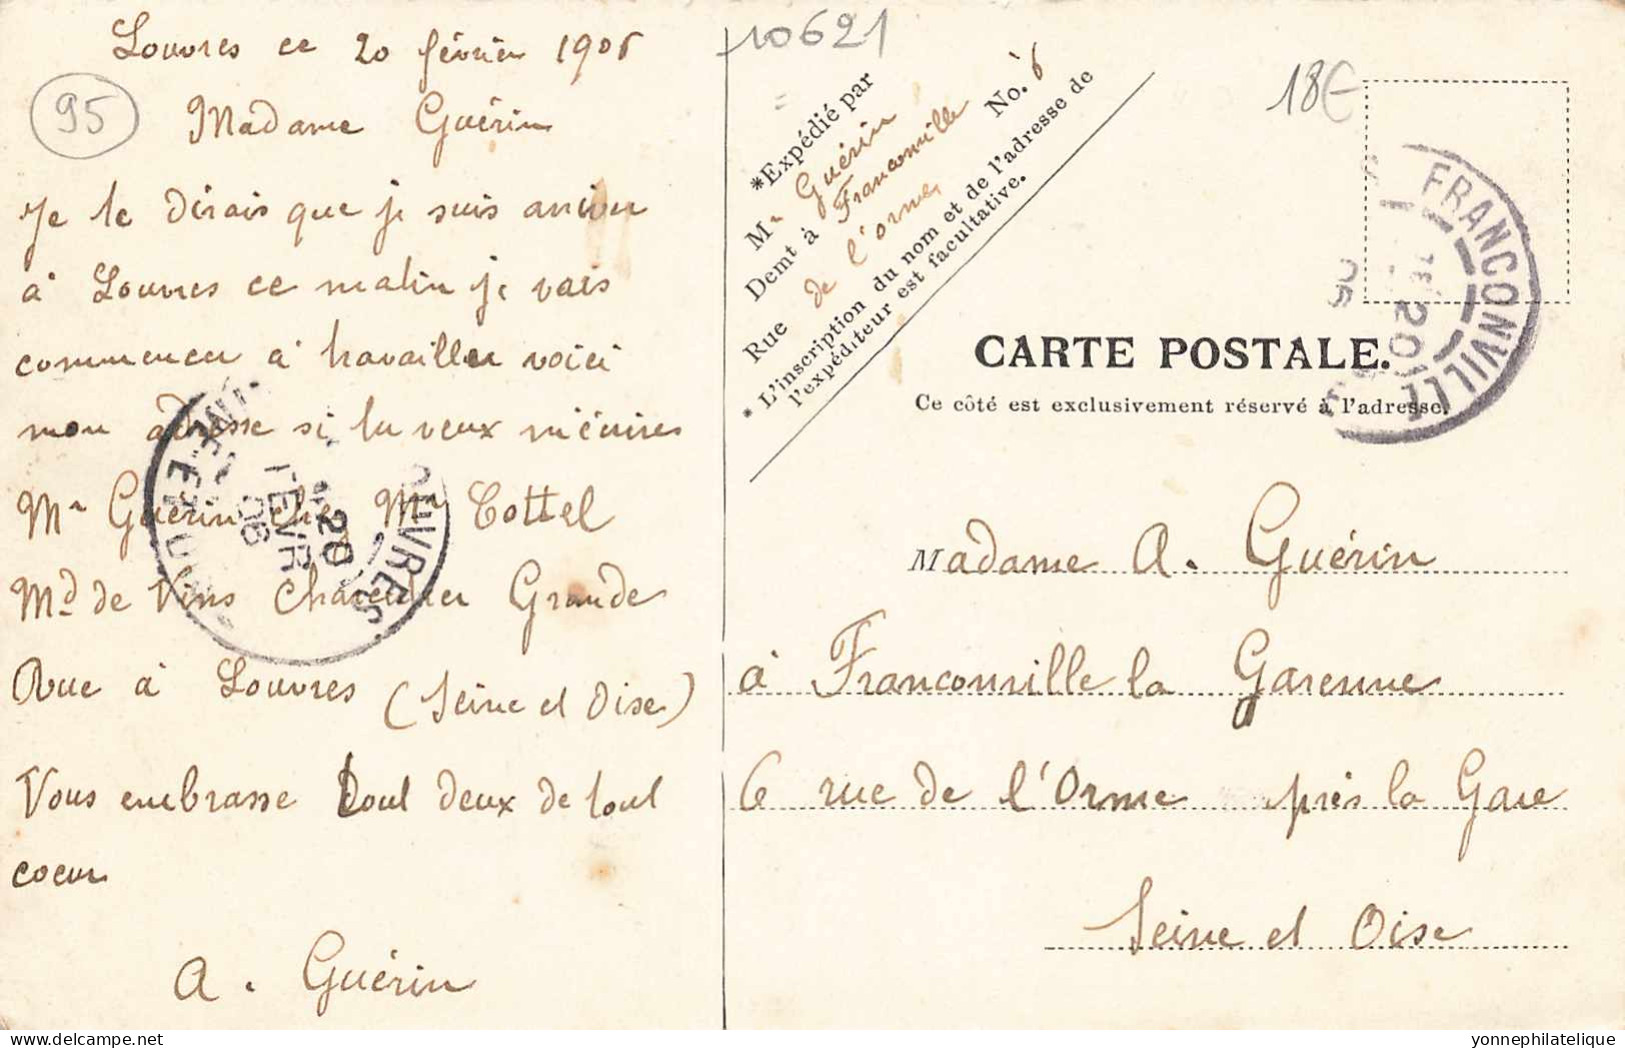 Louvres ce 20 février 1906
95
Madame Guérin
Je te dirais que je suis arriver
à Louvres ce matin je vais
commencer à travailler voici
mon adresse si tu veux m'écrires
Mr Guérin chez Mr Cottel
Md de Vins Charcutier Grande
Rue à Louvres (Seine et Oise)
Vous embrasse tout deux de tout
coeur
A. Guérin
LOUVRES
SEINE ET OISE
20
FEVR
06
10621
18€
*Expédié par
Mr Guérin
Demt à Franconville
Rue de l'orme No. 6
* L'inscription du nom et de l'adresse de
l'expéditeur est facultative.
FRANCONVILLE
20
06
CARTE POSTALE.
Ce côté est exclusivement réservé à l'adresse.
Madame A. Guérin
à Franconville la Garenne
6 rue de l'Orme près la Gare
Seine et Oise
delcampe.net
yonnephilatelique